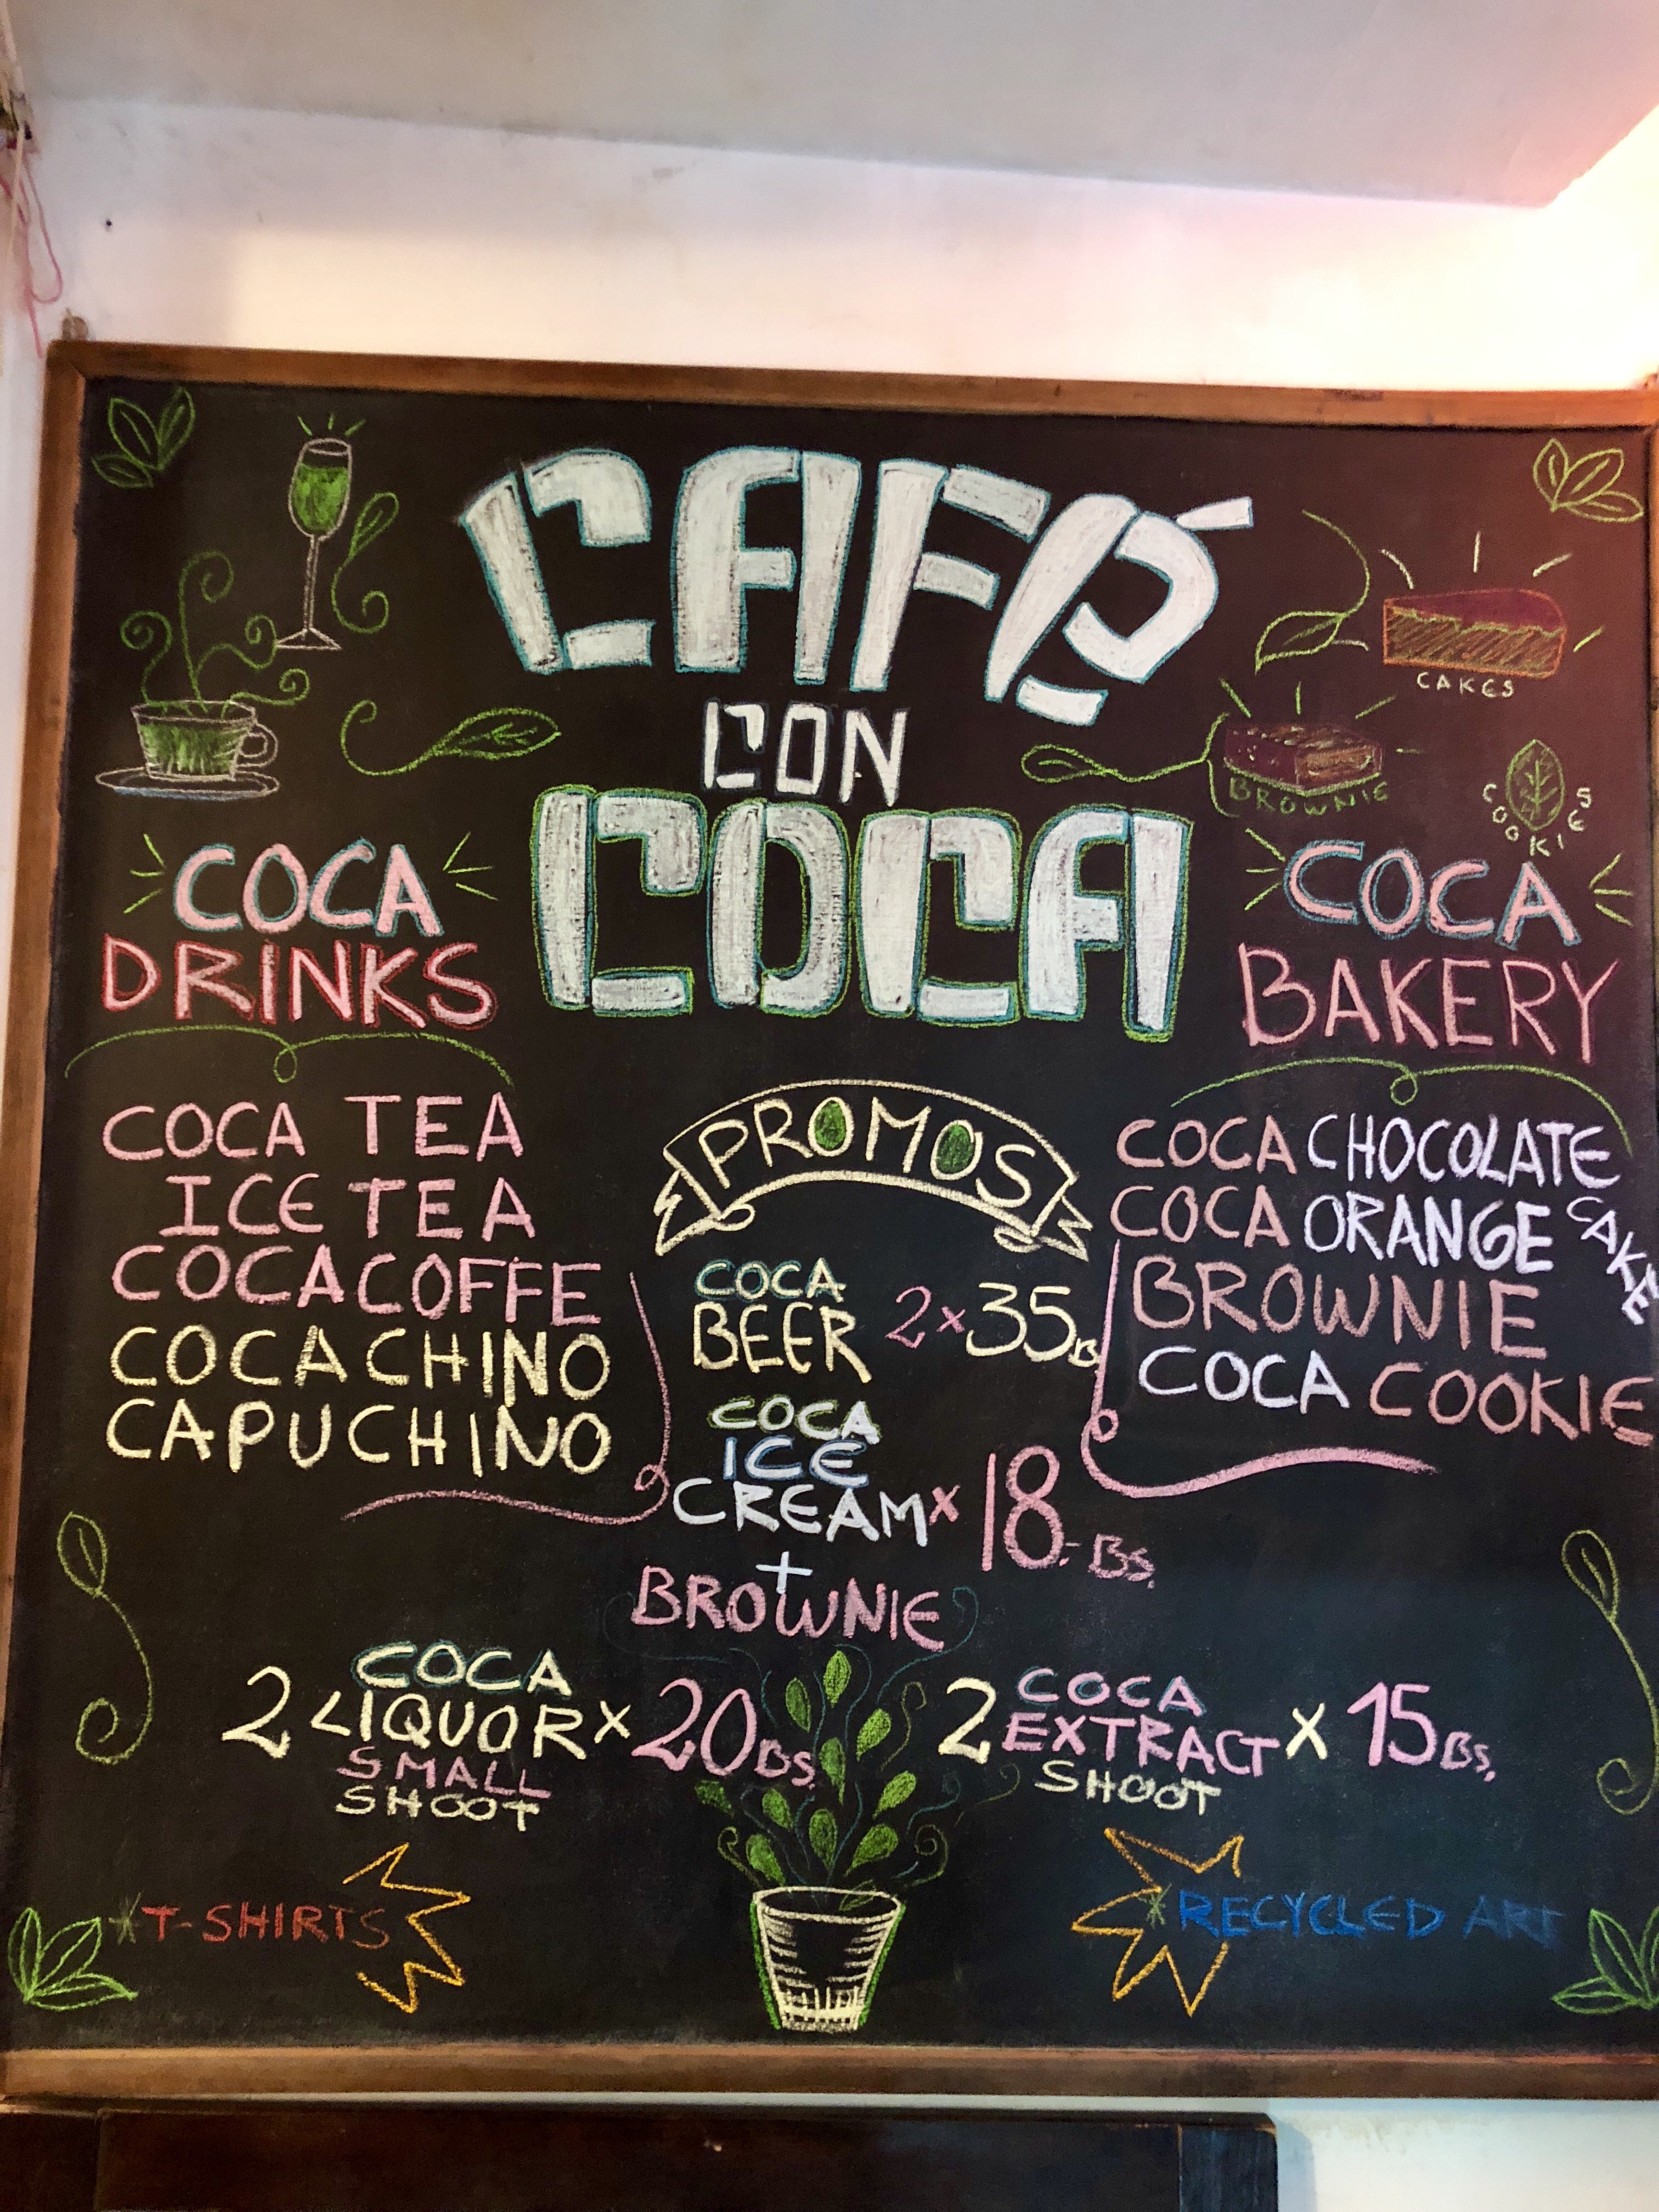 CAFÉ
CON
COCA
CAKES
BROWNIE
COOKIES
COCA
DRINKS
COCA TEA
ICE TEA
COCACOFFE
COCACHINO
CAPUCHINO
COCA
BAKERY
COCA CHOCOLATE
COCA ORANGE CAKE
BROWNIE
COCA COOKIE
PROMOS
COCA
BEER 2x35B
COCA
ICE
CREAM x 18.- BS.
+
BROWNIE
2 COCA
LIQUOR x 20BS.
SMALL
SHOOT
2 COCA
EXTRACT x 15BS.
SHOOT
*T-SHIRTS
*RECYCLED ART